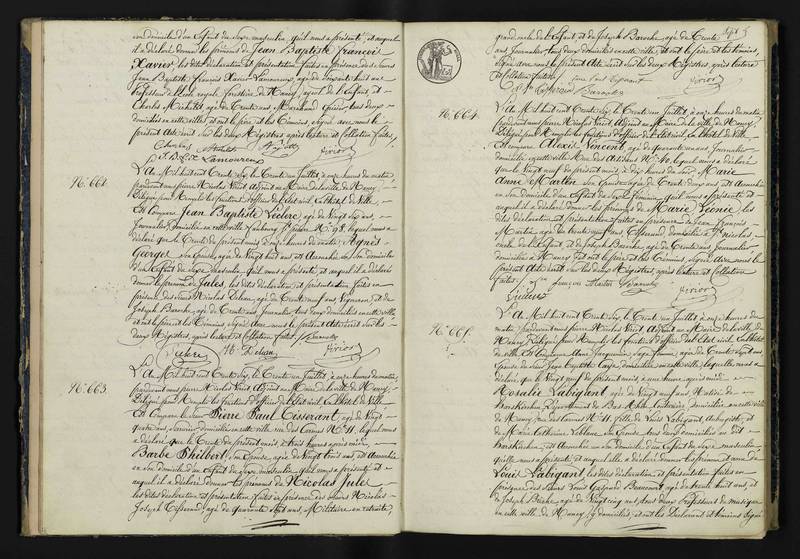 son domicile d'un Enfant du Sexe masculin qu'il nous a présenté, et auquel
il a déclaré donner les prénoms de Jean Baptiste françois
Xavier, les dites déclaration et présentation faites en présence des Sieurs
Jean Baptiste François Xavier Lamoureux, agé de Soixante huit ans
Professeur à l'école royale forestière de Nancy, ayeul de l'Enfant, et
Charles Michelet, agé de Trente ans, Marchand Epicier, tous deux
domiciliés en cette ville, et ont le père et les témoins, Signé avec nous le
présent Acte écrit sur les deux Registres, après lecture et Collation faites,
J. B. F. X. Lamoureux
Nº. 661.
L'An Mil huit cent Trente Six, le Trente un Juillet, à onze heures du matin,
pardevant nous pierre Nicolas Noirot Adjoint au Maire de la ville de Nancy,
Délégué pour Remplir les fonctions d'officier de l'Etat civil. En l'hôtel de Ville.
Est Comparu Jean Baptiste Leclerc, agé de Vingt Six ans,
Journalier, domicilié en cette ville, Faubourg St. pierre, Nº. 98, lequel nous a
déclaré que le Trente du présent mois, à onze heures du matin, Agnès
George, Son Epouse, agée de Vingt huit ans, Est Accouchée en Son domicile
d'un Enfant du Sexe masculin, qu'il nous a présenté, et auquel il a déclaré
donner le prénom de Jules, les dites déclaration et présentation faites en
présence des Sieurs Nicolas Deleau, agé de Trente neuf ans, Vigneron, et de
Joseph Baroche, agé de Trente ans, Journalier, tous deux domiciliés en cette ville,
et ont le père et les témoins, Signé Avec nous le présent Acte écrit Sur les
deux Registres, après lecture et Collation faites.
Leclerc N. Deleau
Nº. 663.
L'An Mil huit cent Trente Six, le Trente un Juillet, à onze heures du matin,
pardevant nous pierre Nicolas Noirot Adjoint au Maire de la ville de Nancy,
Délégué pour Remplir les fonctions d'officier de l'Etat civil. En l'hôtel de Ville,
Est Comparu le Sieur Pierre Paul Tisserant, agé de Vingt
quatre ans, Serrurier, domicilié en cette ville, rue des Carmes Nº. 11, lequel nous
a déclaré que le Trente du présent mois, à trois heures après midi,
Barbe Philbert, Son Epouse, agée de Vingt trois ans, Est Accouchée
en Son domicile d'un Enfant du Sexe masculin qu'il nous a présenté, et
auquel il a déclaré donner les prénoms de Nicolas Jules,
les dites déclaration et présentation faites en présence des Sieurs Nicolas
Joseph Tisserand, agé de quarante Sept ans, Militaire en retraite,
grand oncle de l'Enfant, et de Joseph Baroche, agé de Trente
ans, Journalier, tous deux domiciliés en cette ville, et ont le père et les témoins,
Signé avec nous le présent Acte écrit Sur les deux Registres, après lecture
et Collation faites.
Nº. 664.
L'An Mil huit cent Trente Six, le Trente un Juillet, à onze heures du matin,
pardevant nous pierre Nicolas Noirot Adjoint au Maire de la ville de Nancy,
Délégué pour Remplir les fonctions d'officier de l'Etat civil. En l'hôtel de Ville
Est comparu Alexis Vincent, agé de quarante un ans, Journalier
domicilié en cette ville Rue des Artisans Nº. 10, lequel nous a déclaré
que le Vingt neuf du présent mois, à dix heures du Soir, Marie
Anne Martin, Son Epouse, agée de Trente deux ans, Est Accouchée
en Son domicile d'un Enfant du Sexe féminin qu'il nous a présenté, et
auquel il a déclaré donner les prénoms de Marie Léonie, les
dites déclaration et présentation faites en présence de Jean François
Martin, agé de Trente neuf ans, Tisserand, domicilié à St. Nicolas,
oncle de l'Enfant, et de Joseph Baroche, agé de Trente ans, Journalier
domicilié à Nancy, et ont le père et les témoins, Signé Avec nous le
présent Acte écrit Sur les deux Registres, après lecture et Collation
faites.
françois Martin
Nº. 665.
L'An Mil huit cent Trente Six, le Trente un Juillet, à onze heures du
matin, pardevant nous pierre Nicolas Noirot Adjoint au Maire de la ville de
Nancy, Délégué pour Remplir les fonctions d'officier de l'Etat civil. En l'hôtel
de Ville. Est Comparue Anne Jacquemin, Sage femme, agée de Trente Sept ans,
Epouse du Sieur Jean Baptiste domiciliée en cette ville, laquelle nous a
déclaré, que le Vingt neuf du présent mois, à une heure après midi
Rosalie Labigant, agée de Vingt neuf ans, Native de
Département du Bas Rhin, domiciliée en cette ville
de Nancy, rue des Carmes Nº. 11, fille de Louis Labigant, Aubergiste, et
de Marie Catherine Son Epouse, tous deux domiciliés au dit
Est Accouchée en Son domicile d'un Enfant du Sexe masculin,
qu'elle nous a présenté, et auquel elle a déclaré donner les prénom et nom de
Louis Labigant, les dites déclaration et présentation faites en
présence des Sieurs Louis Gaspard agé de trente huit ans, et
de Joseph agé de Vingt cinq ans, tous deux Professeurs de musique
en cette ville de Nancy, y domiciliés, et ont les Déclarant et témoins Signé